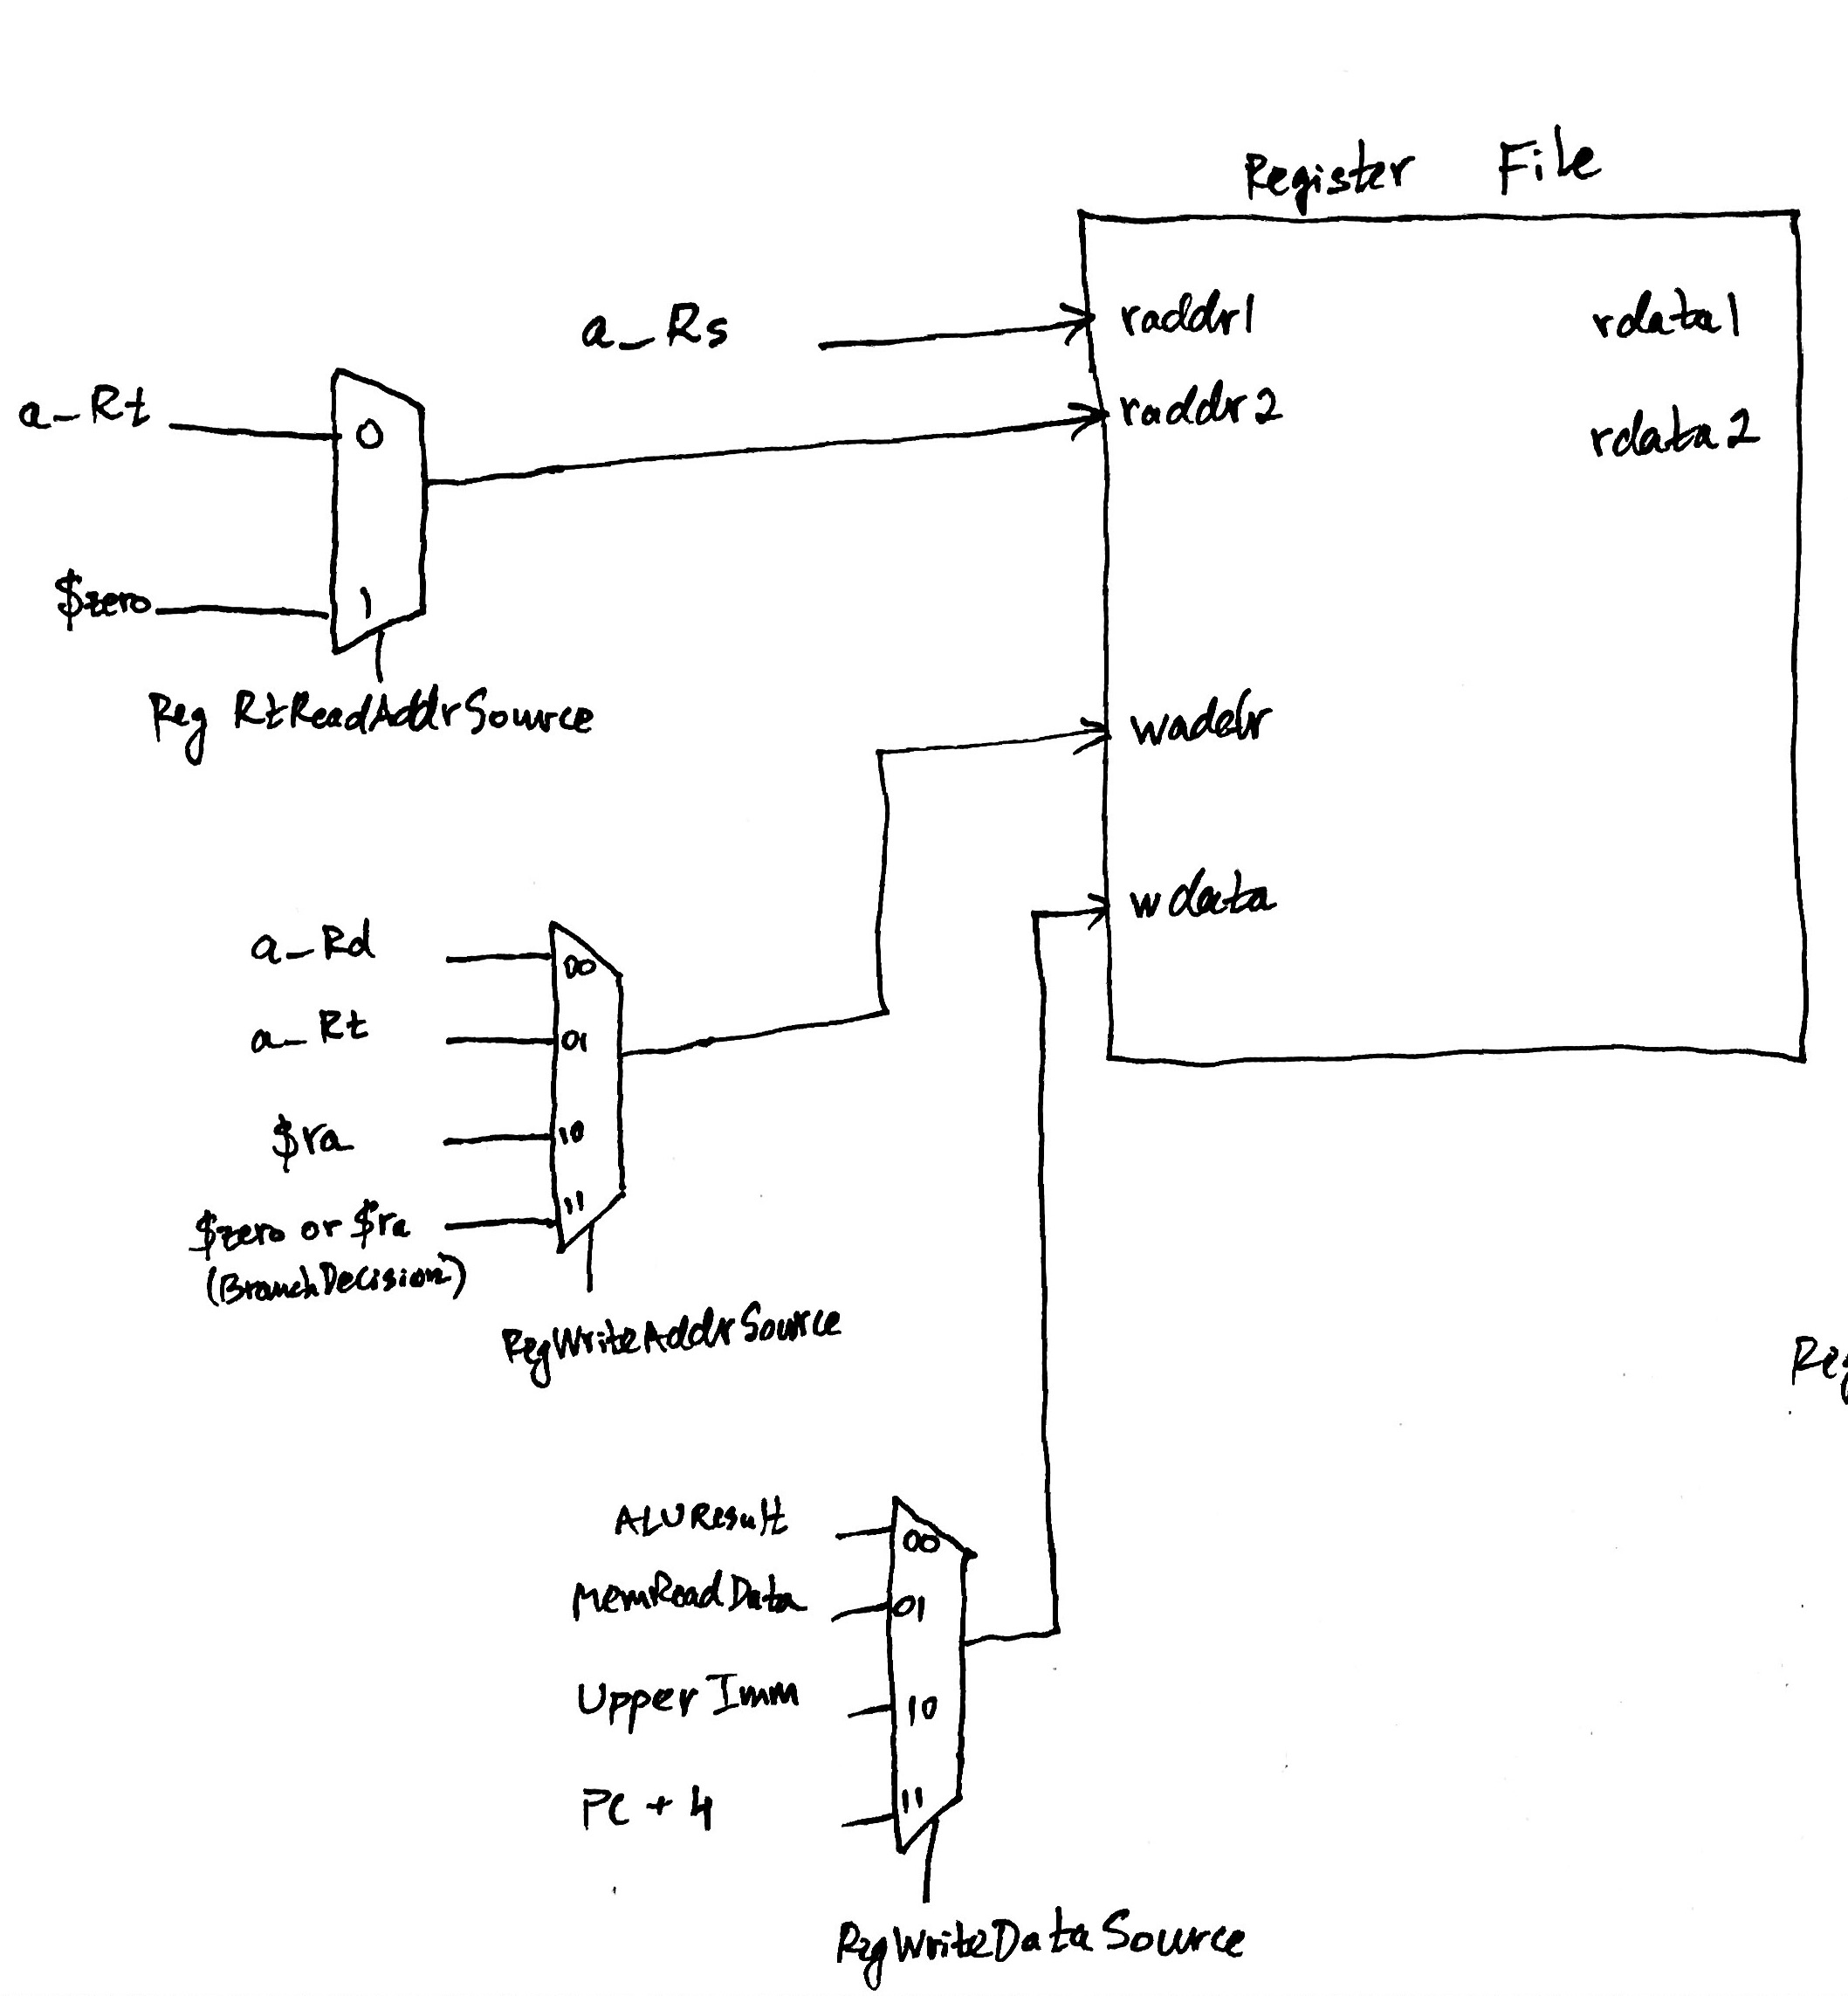 Register File
a_Rs
raddr1
rdata1
a_Rt
0
raddr2
rdata2
$zero
1
Reg RtReadAddrSource
waddr
wdata
a_Rd
00
a_Rt
01
$ra
10
$zero or $ra
11
(BranchDecision)
RegWriteAddrSource
Reg
ALUResult
00
MemReadData
01
Upper Imm
10
PC + 4
11
RegWriteDataSource